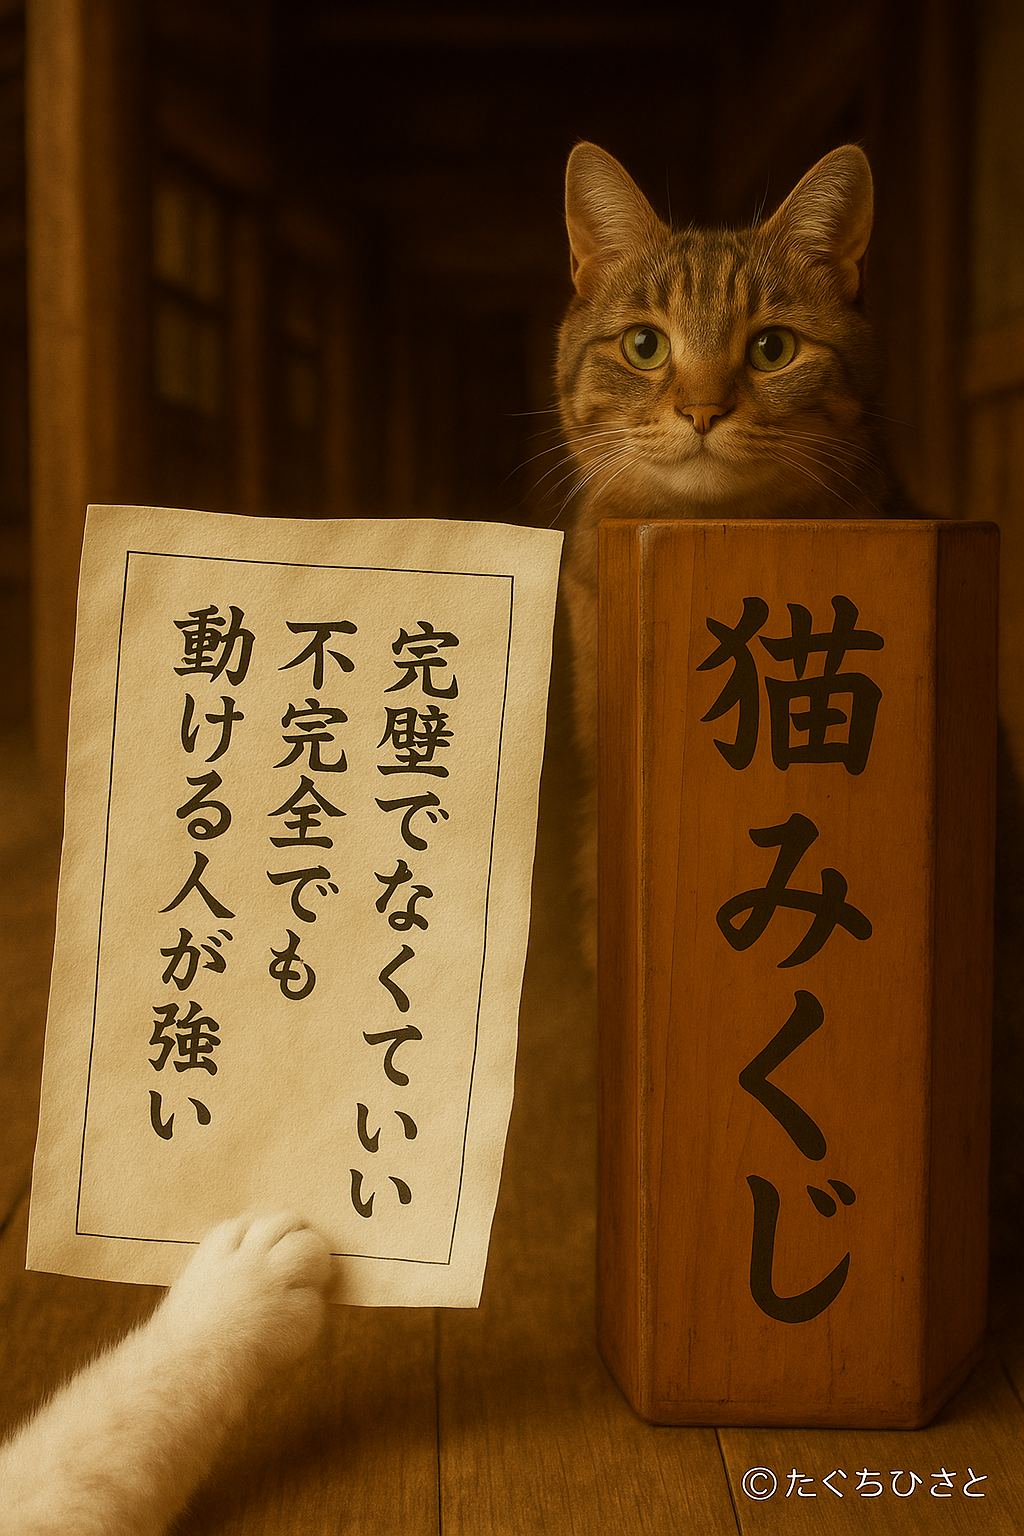 完璧でなくていい
不完全でも
動ける人が強い
猫みくじ
©たぐちひさと